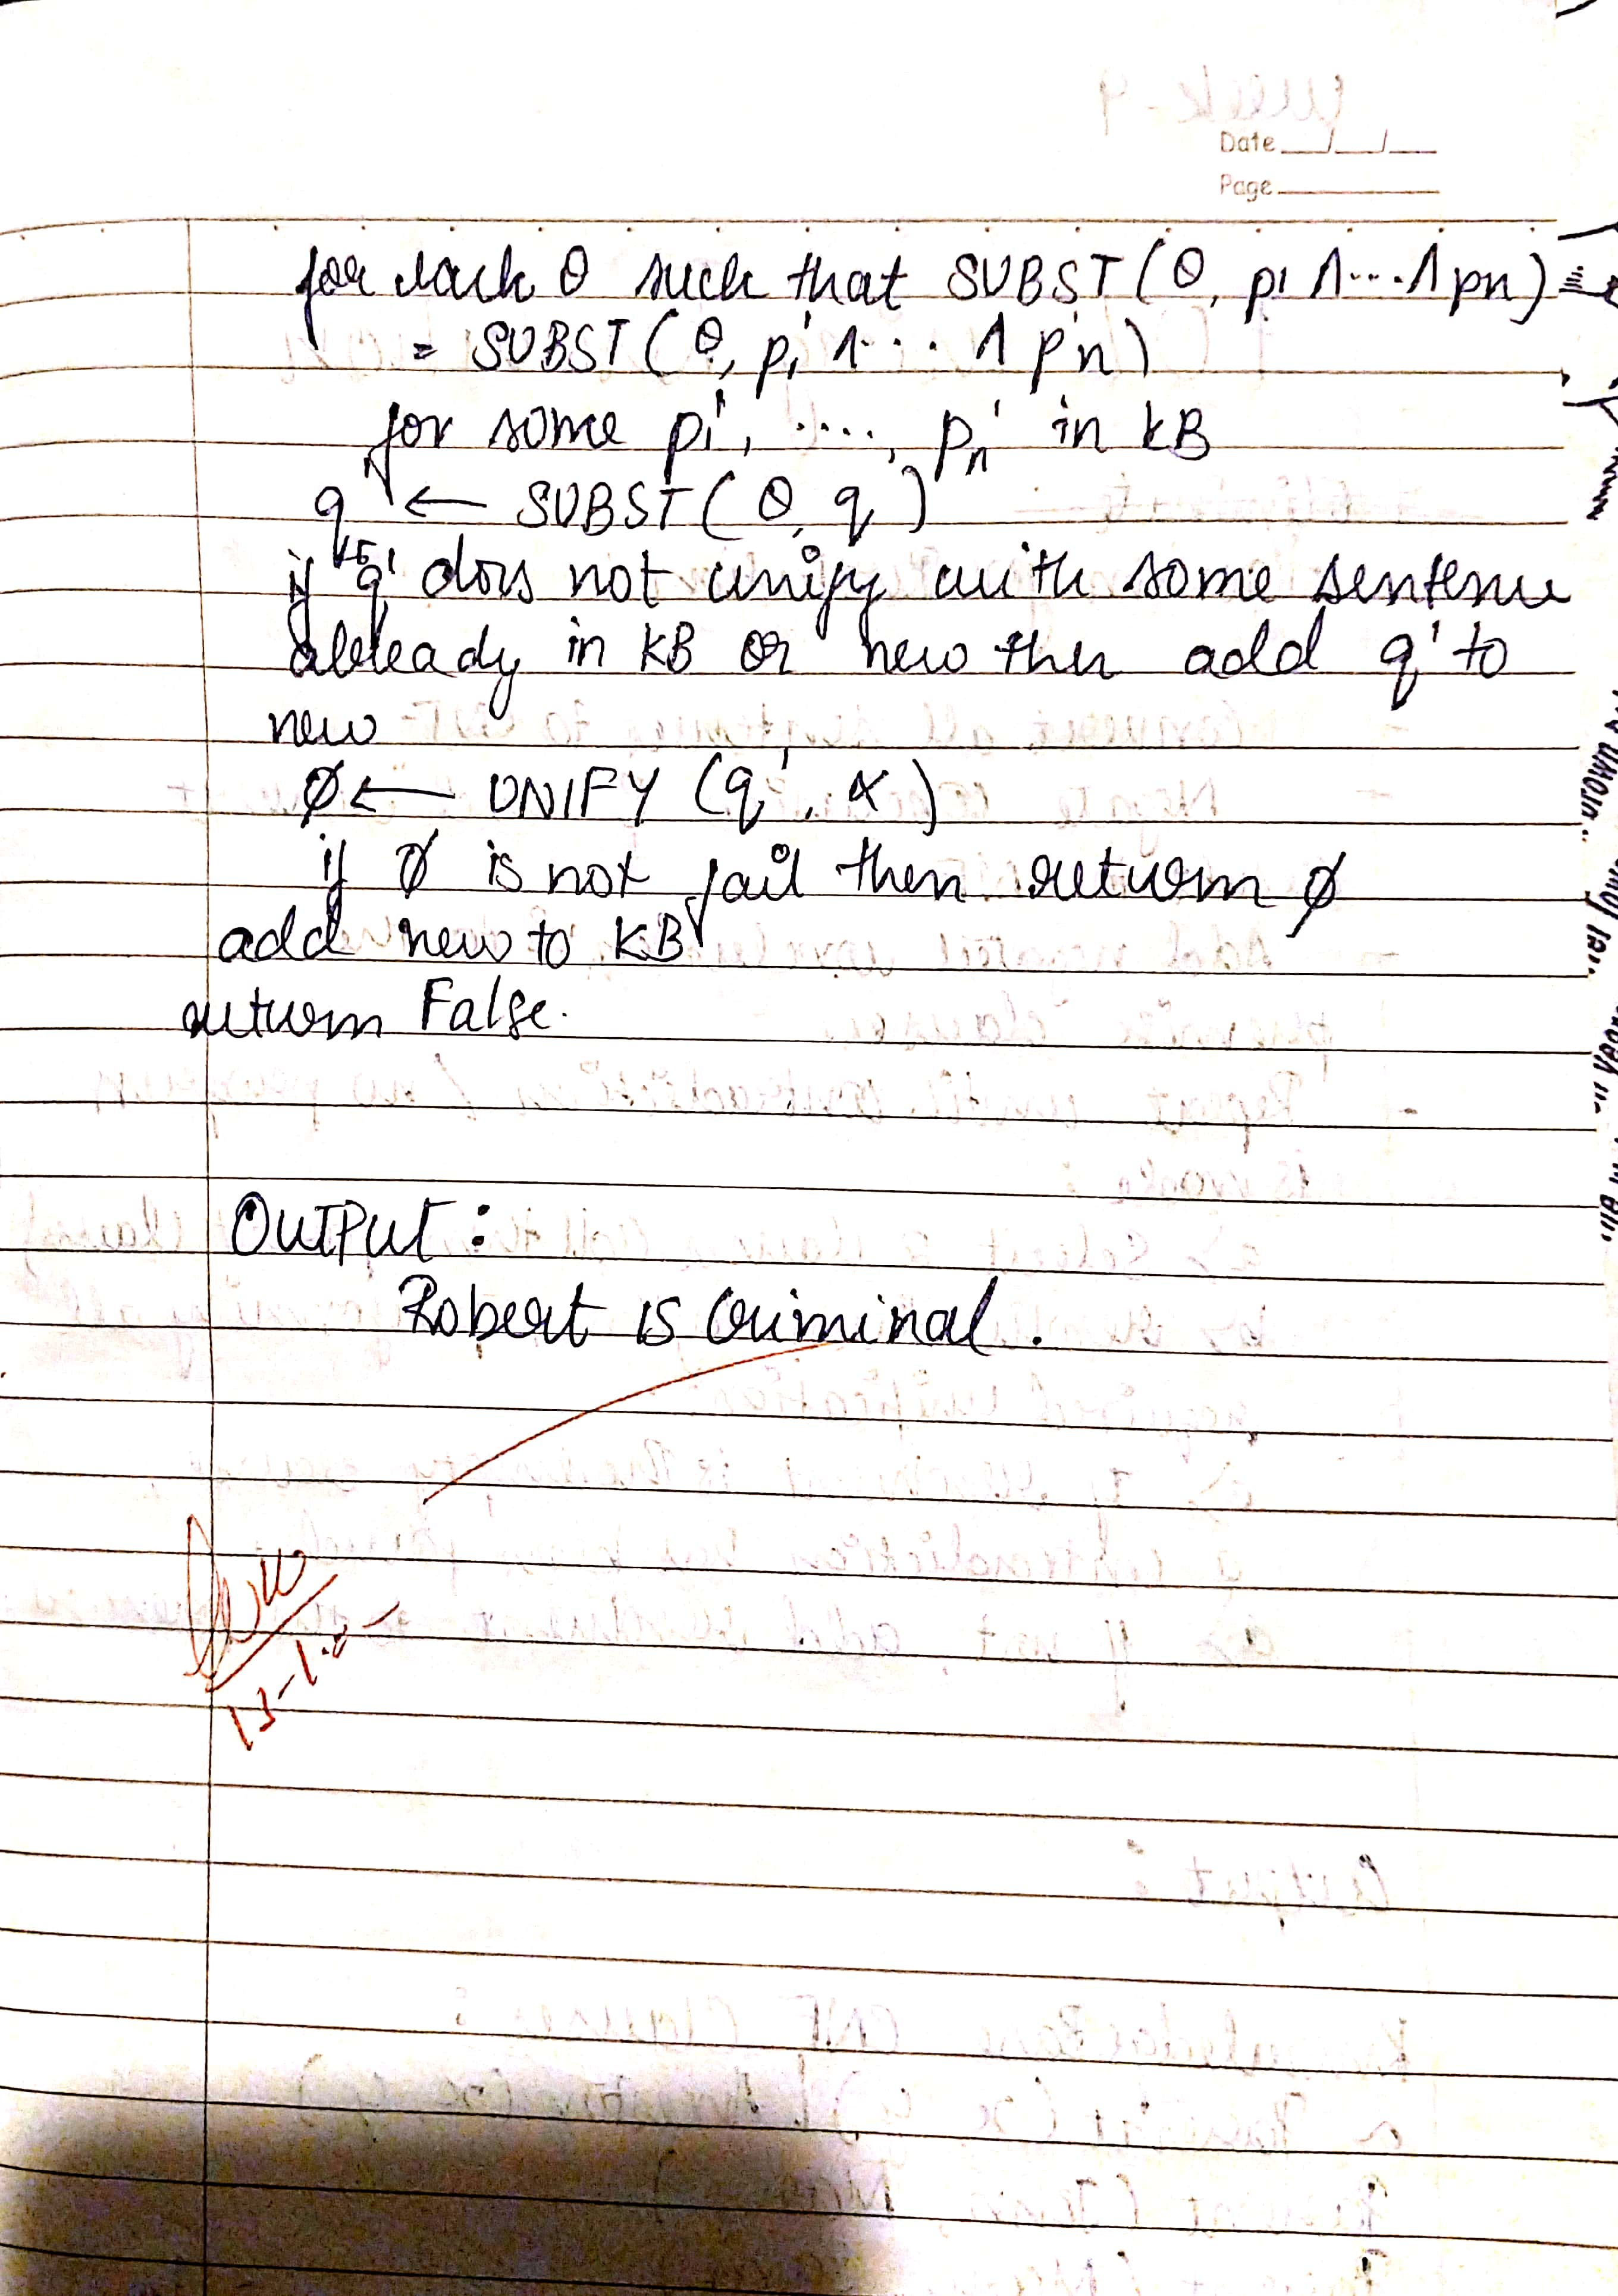 Date __/__/__
Page ______
for each θ such that SUBST(θ, p1 ∧...∧ pn) =
= SUBST(θ, p1' ∧ ... ∧ p'n)
for some p1', ...., pn' in KB
q' ← SUBST(θ, q)
if q' does not unify with some sentence
already in KB or new then add q' to
new
ϕ ← UNIFY (q', α)
if ϕ is not fail then return ϕ
add new to KB
return False.
OUTPUT :
Robert is Criminal.